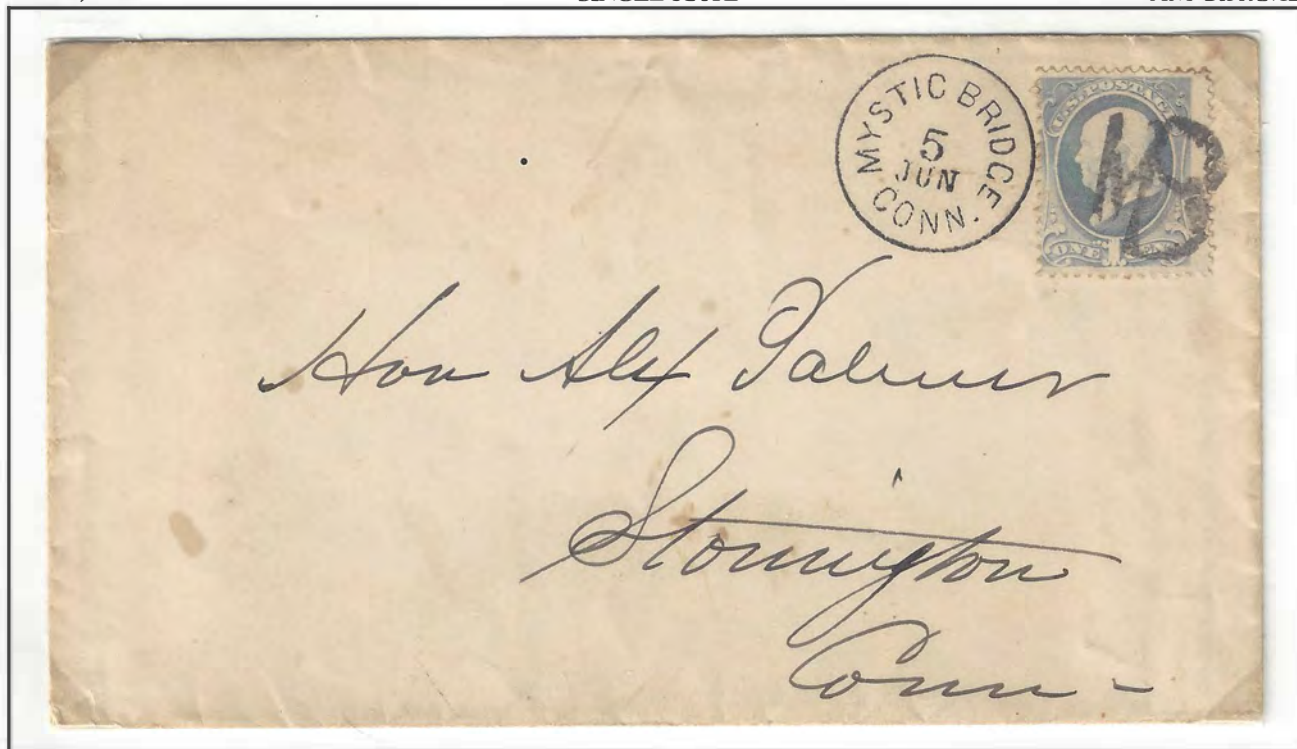 MYSTIC BRIDGE
5
JUN
CONN.
U.S. POSTAGE
MB
ONE 1 CENT
Hon Alex Palmer
Stonington
Conn-